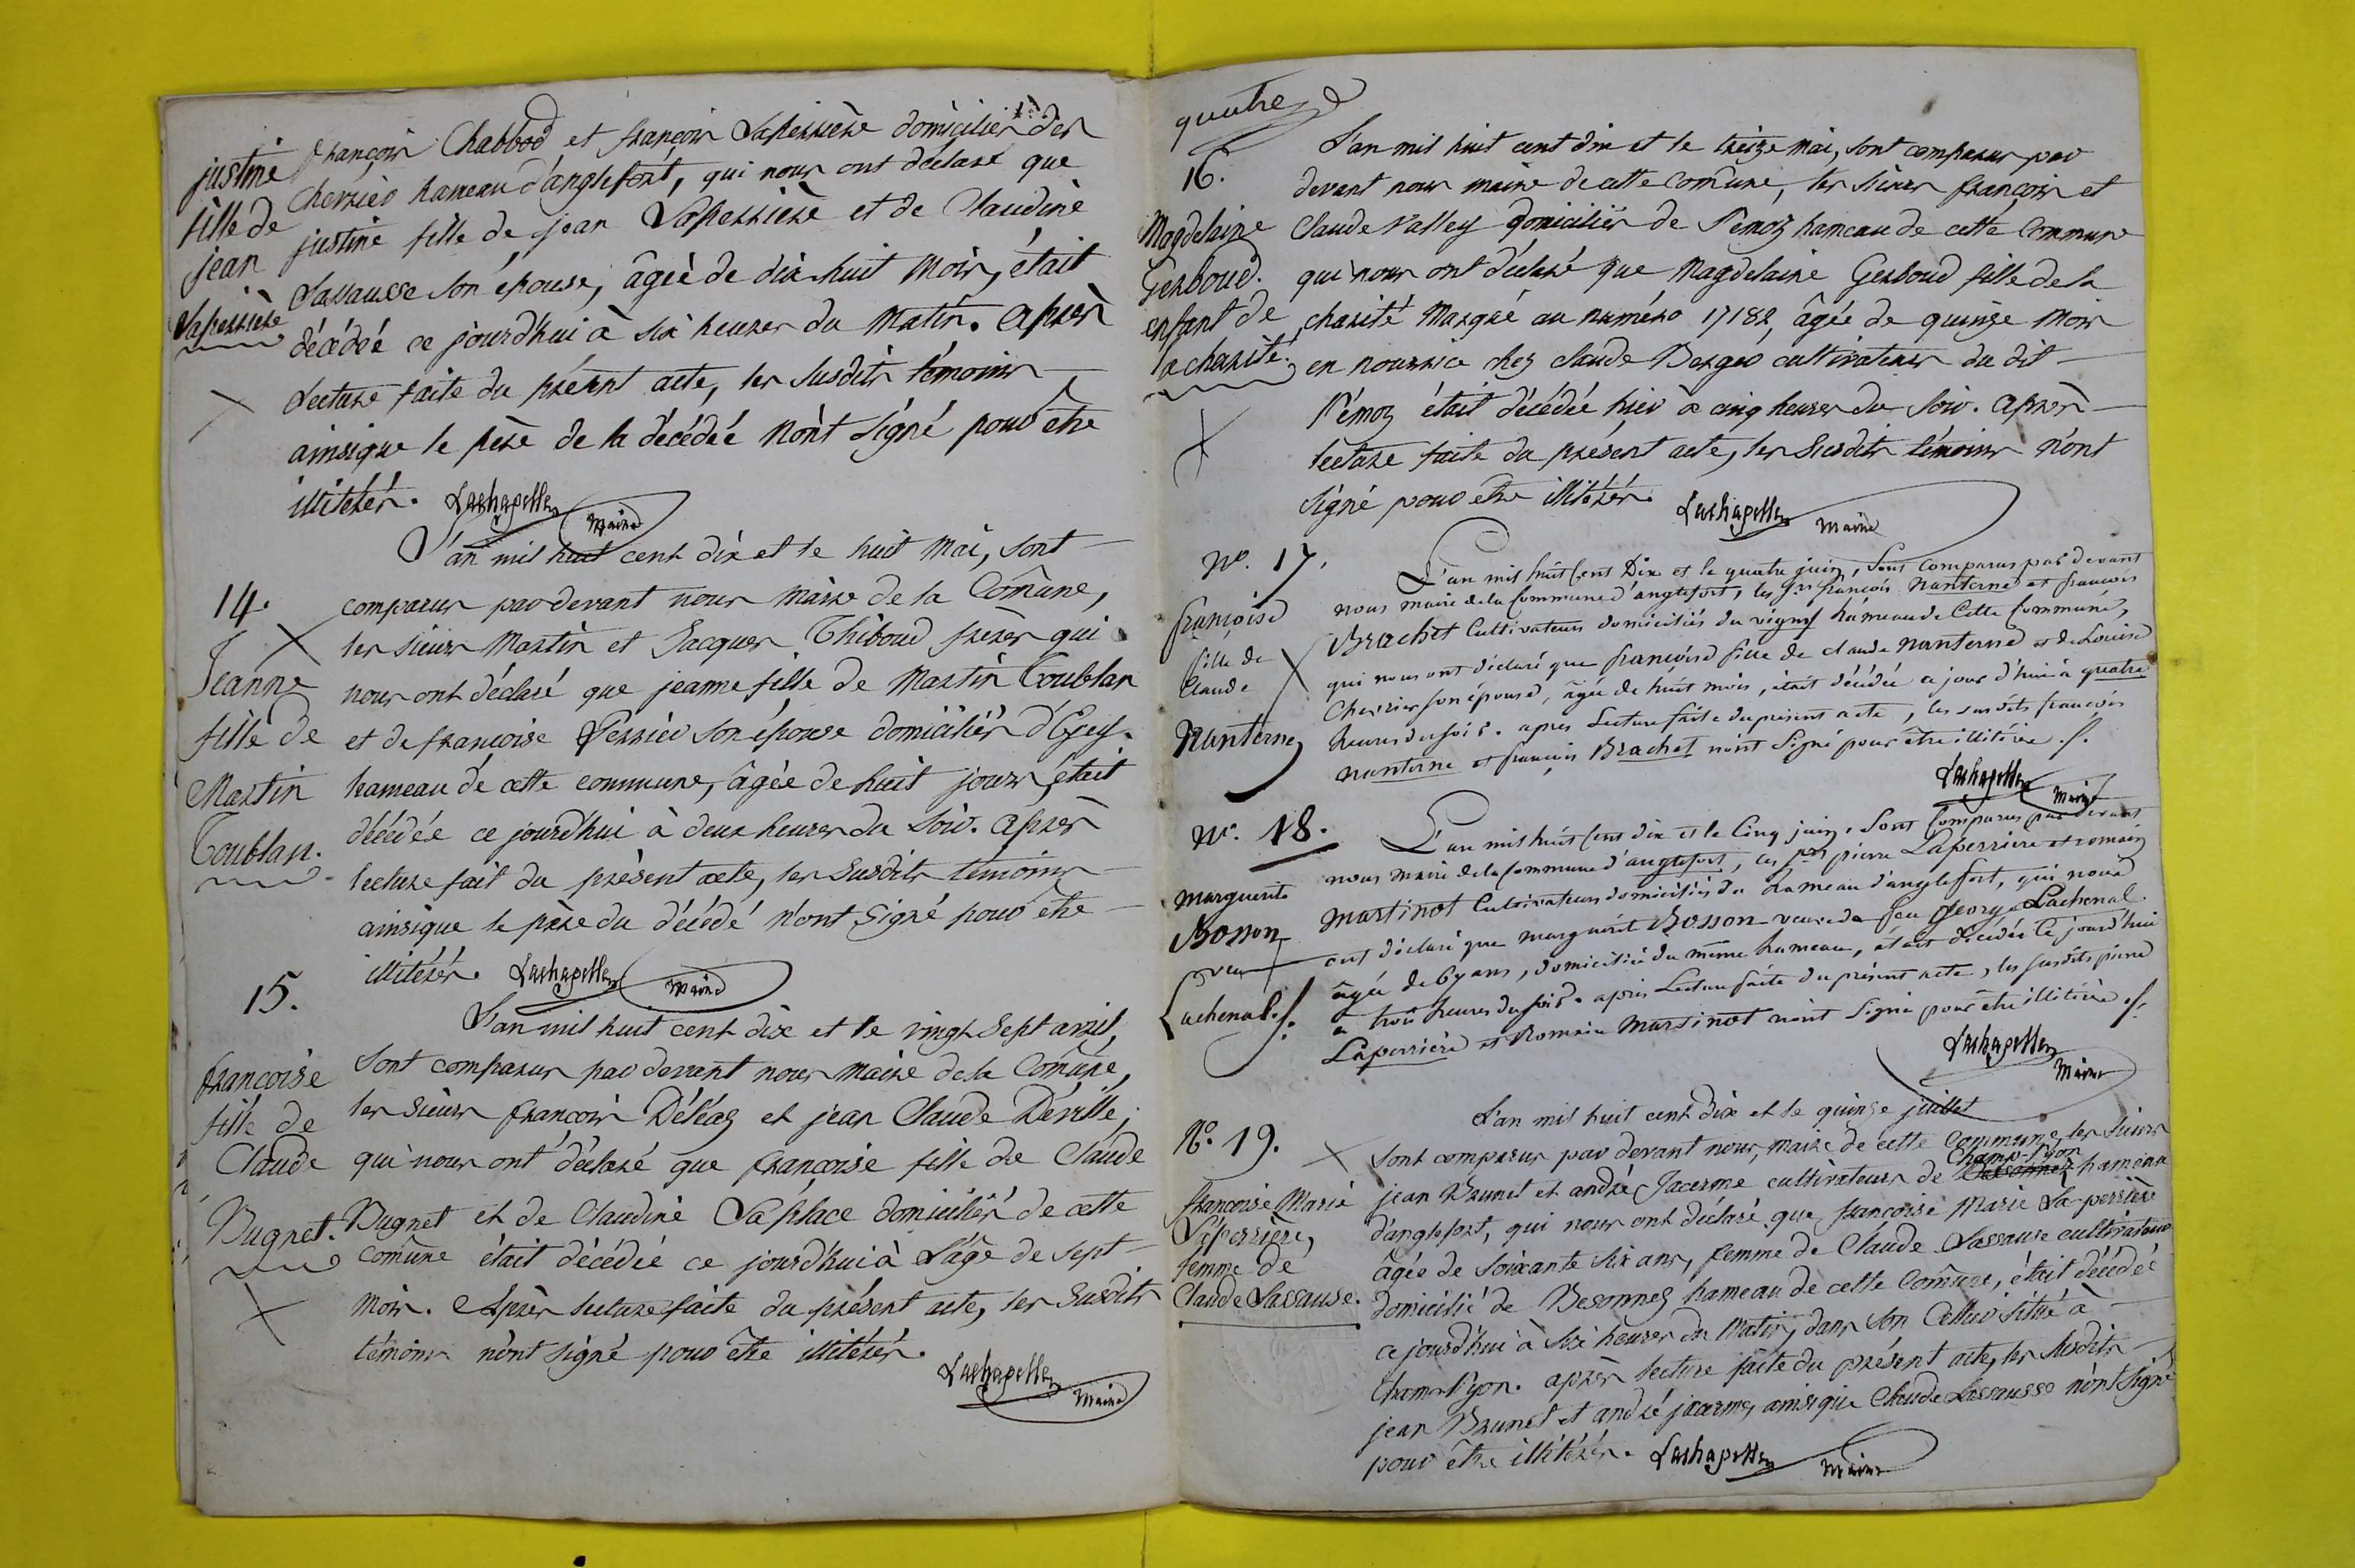 justine
fille de
jean
Laperrière
françois Chabbod et françois Laperrière domiciliés des
cherrier hameau d'anglefort, qui nous ont déclaré que
justine fille de jean Laperrière et de Claudine
Lassausse son épouse, âgée de dix-huit mois, était
décédée ce jourd'hui à six heures du Matin. Après
Lecture faite du présent acte, les susdits témoins
ainsique le père de la décédée n'ont signé pour être
illitérés. Lachapelle Maire
14.
Jeanne
fille de
Martin
Toublan.
L'an mil huit cent dix et le huit Mai, sont
comparus par devant nous Maire de la Comune,
les sieurs Martin et Jacques Thiboud frères qui
nous ont déclaré que jeanne fille de Martin Toublan
et de françoise Perrier son épouse domiciliés d'Eyey.
hameau de cette commune, âgée de huit jours, était
décédée ce jourd'hui à deux heures du soir. Après
lecture fait du présent acte, les susdits témoins
ainsique le père du décédé n'ont signé pour etre
illitérés. Lachapelle Maire
15.
françoise
fille de
Claude
Dugnet.
L'an mil huit cent dix et le vingt sept avril,
sont comparus par devant nous Maire de la Comune,
les sieurs françois Déléaz et jean Claude Déville,
qui nous ont déclaré que françoise fille de Claude
Dugnet et de Claudine Laplace domiciliés de cette
comune était décédée ce jourd'hui à l'âge de sept
mois. Après lecture faite du présent acte, les susdits
témoins n'ont signé pour être illitérés.
Lachapelle Maire
quatre
16.
Magdelaine
Gerboud.
enfant de
la charité.
L'an mil huit cent dix et le treize mai, sont comparus par
devant nous maire de cette comune, les sieurs françois et
Claude Valley domiciliés de Pémoz hameau de cette Commune
qui nous ont déclaré que Magdelaine Gerboud fille de la
charité Marqué au numéro 17182, âgée de quinze mois
en nourrice chez claude Berger cultivateur du dit
Pémoz était décédée hier à cinq heures du soir. Après
lecture faite du présent acte, les susdits témoins n'ont
signé pour etre illitérés. Lachapelle Maire
No. 17.
françoise
fille de
Claude
Nanterne
L'an mil huit cent Dix et le quatre juin, sont comparus par devant
nous maire de la Commune d'anglefort, les srs françois Nanterne et françois
Brachet Cultivateurs domiciliés du vigny hameau de Cette Commune,
qui nous ont déclaré que françoise fille de claude Nanterne et de Louise
Cherrier son épouse, âgée de huit mois, était décédée ce jour d'hui à quatre
heures du soir. apres Lecture faite du présent acte, les susdits françois
Nanterne et françois Brachet n'ont Signé pour être illitérée ./.
Lachapelle Maire
No. 18.
Marguerite
Bosson
veuve
Lachenal ./.
L'an mil huit Cent dix et le Cinq juin, Sont Comparus par devant
nous Maire de la Commune d'anglefort, les srs pierre Laperriere et romain
Martinot Cultivateurs domiciliés du hameau d'anglefort, qui nous
ont déclaré que marguérite Bosson veuve de feu Georg Lachenal.
âgée de 69 ans, domiciliée du même hameau, était décédée Ce jourd'hui
à trois heures du soir. après Lecture faite du présent acte, les susdits pierre
Laperriere et Romain Martinot n'ont Signé pour être illitérée ./.
Lachapelle Maire
No. 19.
françoise Marie
Laperrière,
femme de
Claude Lassause.
L'an mil huit cent dix et le quinze juillet
sont comparus par devant nous, Maire de cette Commune, les sieurs
Champ-Fyon
jean Brunet et andré Jacerme cultivateurs de Besonnez hameau
d'anglefort, qui nous ont déclaré que francoise Marie La perrière
âgée de soixante six ans, femme de Claude Lassause cultivateur
domicilié de Besonnez hameau de cette Comune, était décédée
ce jourd'hui à six heures du Matin, dans son Cellier situé à
Champ-Fyon. après lecture faite du présent acte, les susdits
jean Brunet et andré jacerme, ainsique Claude Lassausse n'ont signé
pour être illitérés. Lachapelle Maire